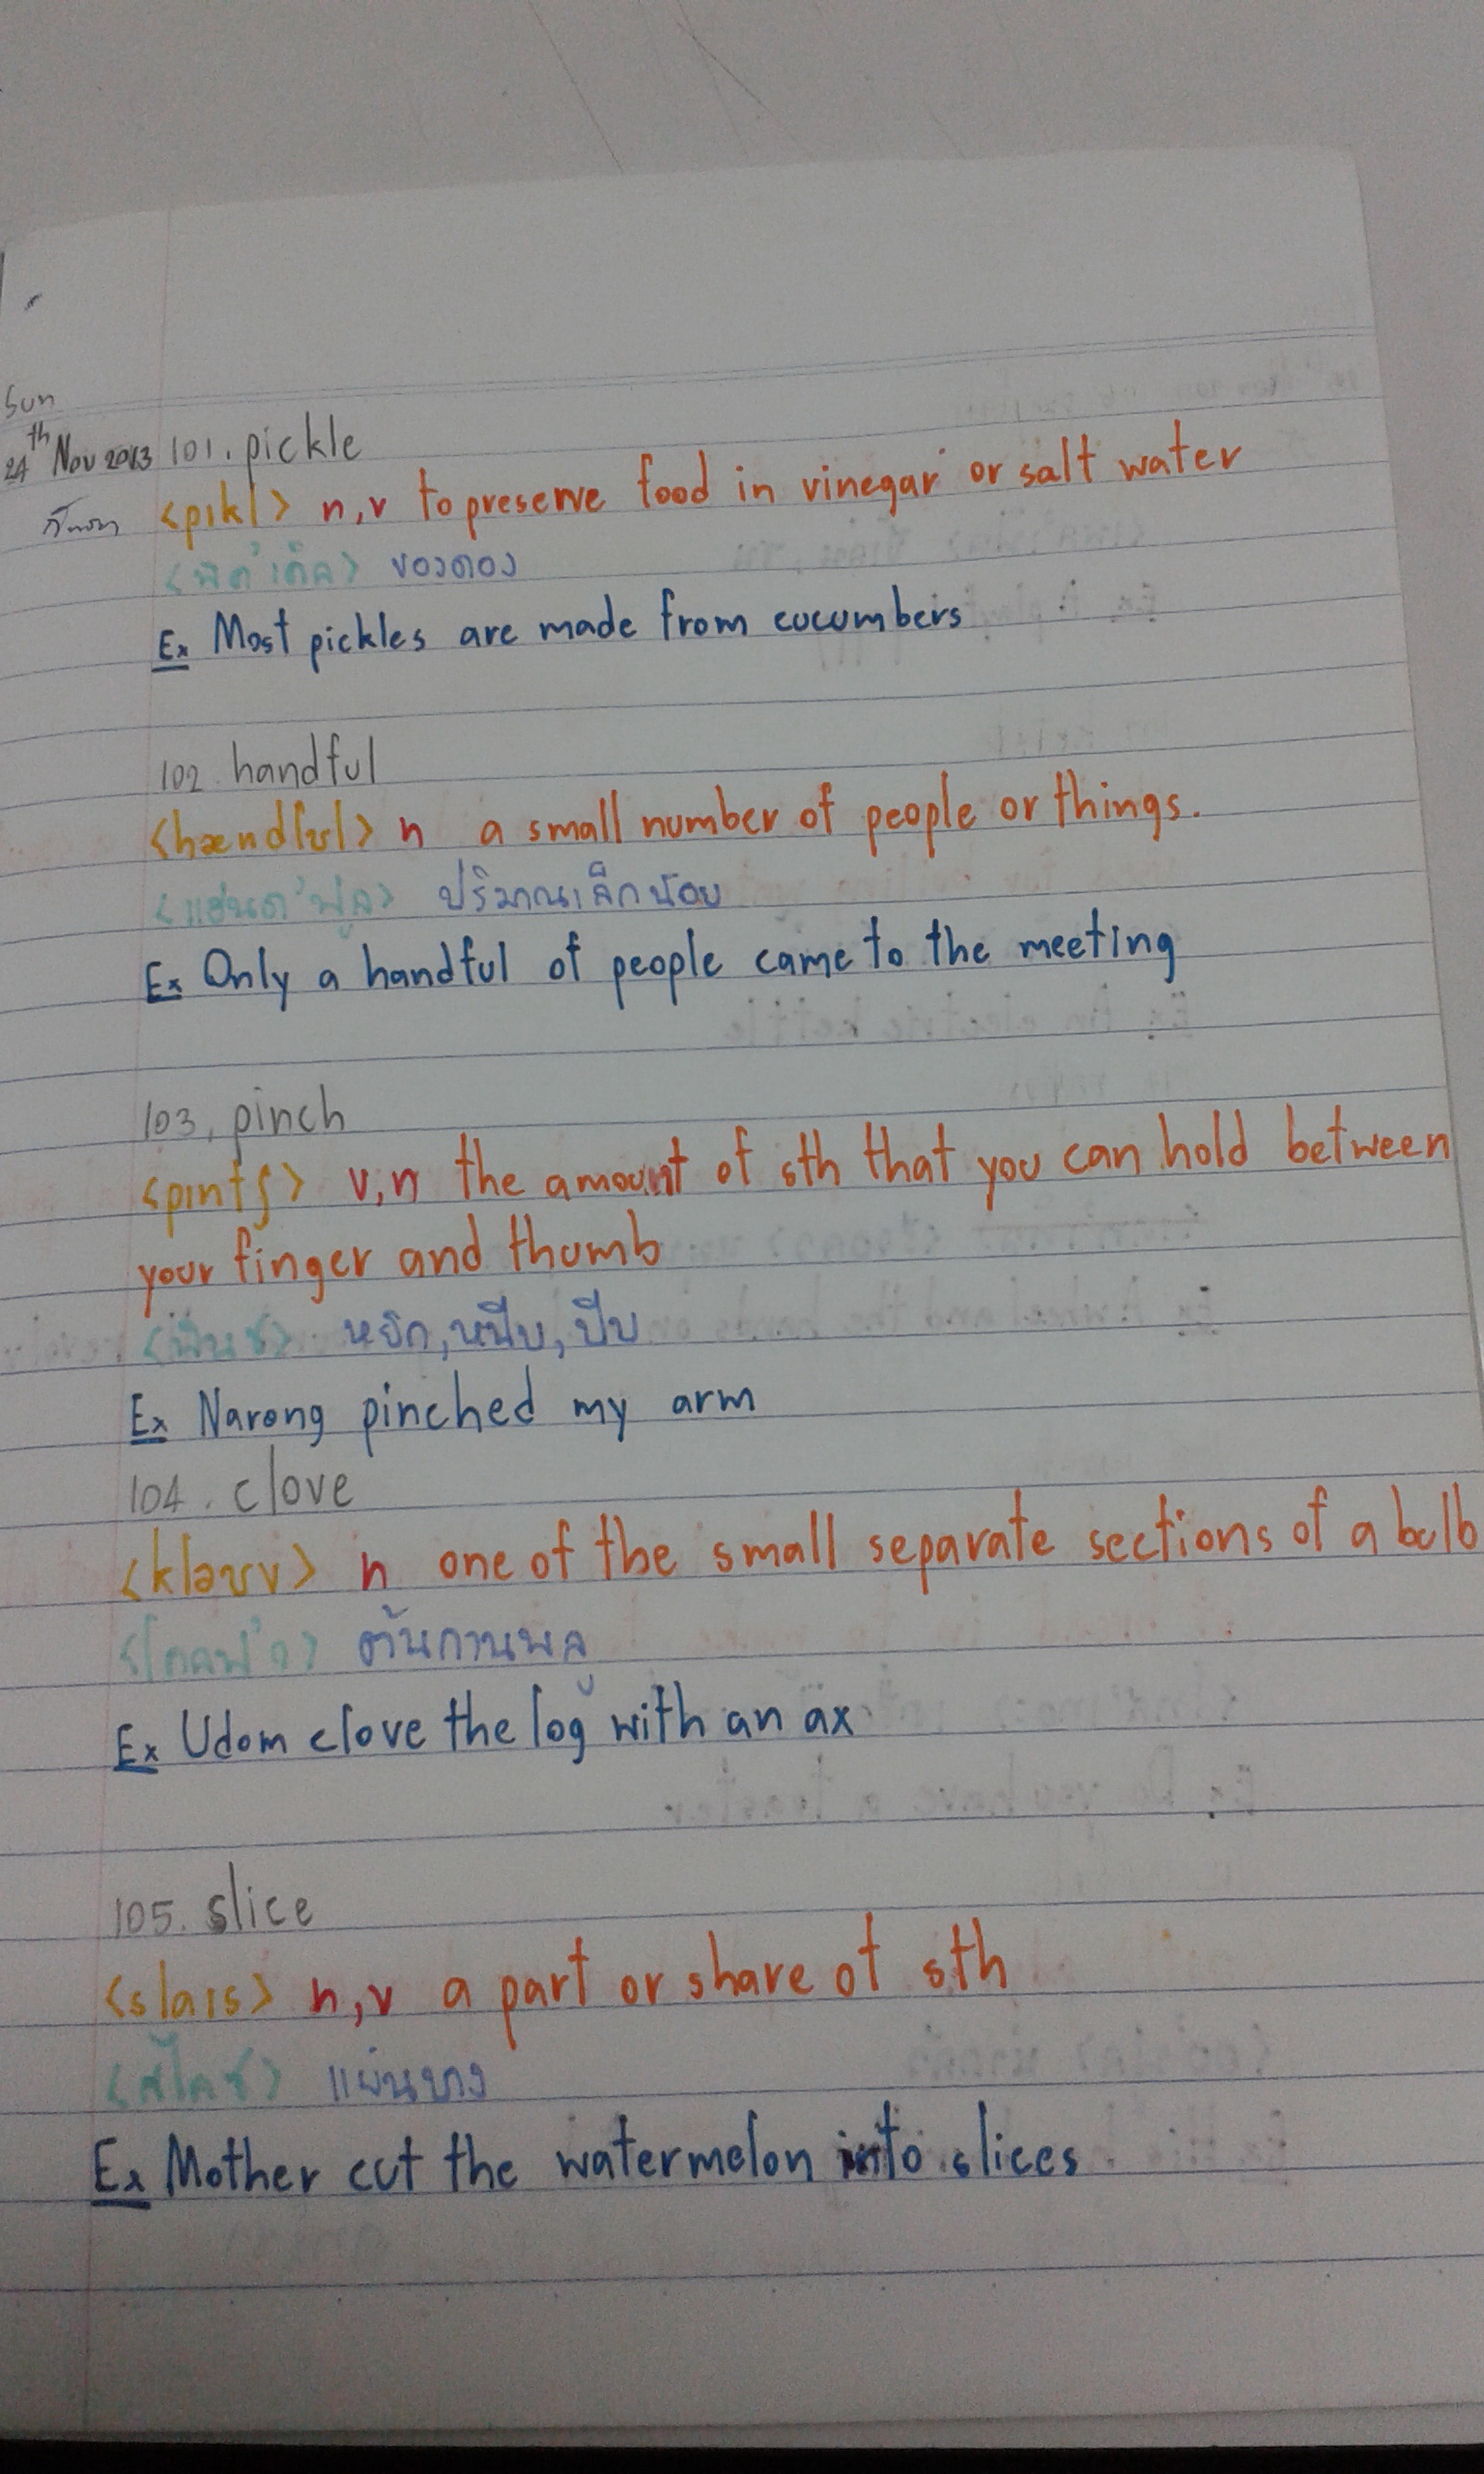 Sun
24th Nov 2013 101. pickle
<pɪkl> n,v to preserve food in vinegar or salt water
<พิค'เคิล> ของดอง
Ex Most pickles are made from cucumbers
102. handful
<hændfʊl> n a small number of people or things.
<แฮนด'ฟูล> ปริมาณเล็กน้อย
Ex Only a handful of people came to the meeting
103. pinch
<pɪntʃ> v,n the amount of sth that you can hold between
your finger and thumb
<พินช> หยิก,หนีบ,บีบ
Ex Narong pinched my arm
104. clove
<kləʊv> n one of the small separate sections of a bulb
ต้นกานพลู
Ex Udom clove the log with an ax
105. slice
<slaɪs> n,v a part or share of sth
<สไลซ> แผ่นบาง
Ex Mother cut the watermelon into slices.